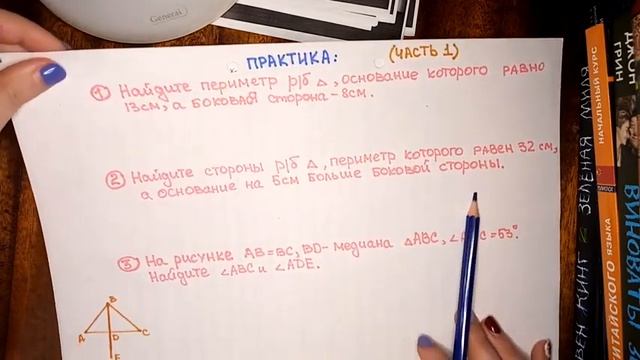 General
ПРАКТИКА: (ЧАСТЬ 1)
① Найдите периметр р/б △, основание которого равно
13см, а боковая сторона - 8см.
② Найдите стороны р/б △, периметр которого равен 32 см,
а основание на 5см больше боковой стороны.
③ На рисунке AB=BC, BD- медиана △ABC, =53°.
Найдите ∠ABC и ∠ADE.
B
A D C
E
СТИВЕН КИНГ ЗЕЛЕНАЯ МИЛЯ
НАЧАЛЬНЫЙ КУРС
КИТАЙСКОГО ЯЗЫКА
ДЖОН
ГРИН
ВИНОВАТЫ